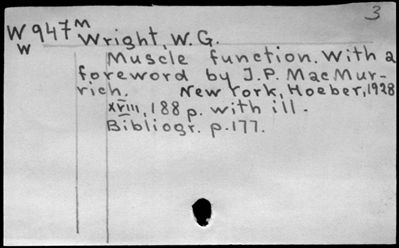 3
W947m Wright, W.G.
W
Muscle function. With a
foreword by J.P. MacMur-
rich. New York, Hoeber, 1928
xviii, 188 p. with ill.
Bibliogr. p.177.